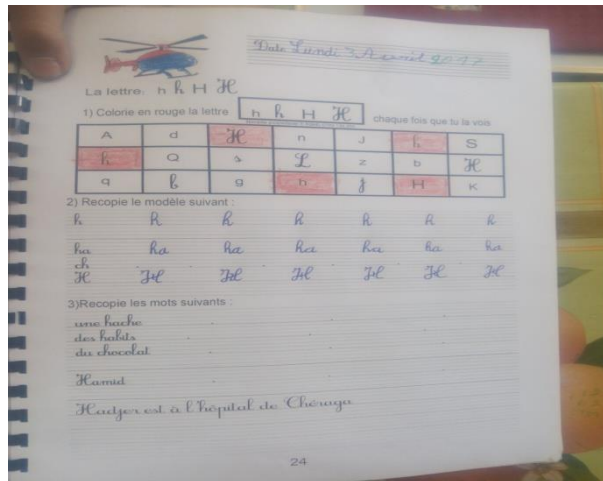 Date Lundi 3 Avril 2017
La lettre: h h H H
1) Colorie en rouge la lettre h h H H chaque fois que tu la vois
A d H n J h S
h Q s L z b H
q b g h f H K
2) Recopie le modèle suivant :
h h h h h h h
ha ha ha ha ha ha ha
ch
H H H H H H H
3)Recopie les mots suivants :
une hache
des habits
du chocolat
Hamid
Hadjer est à l'hôpital de Chéraga
24